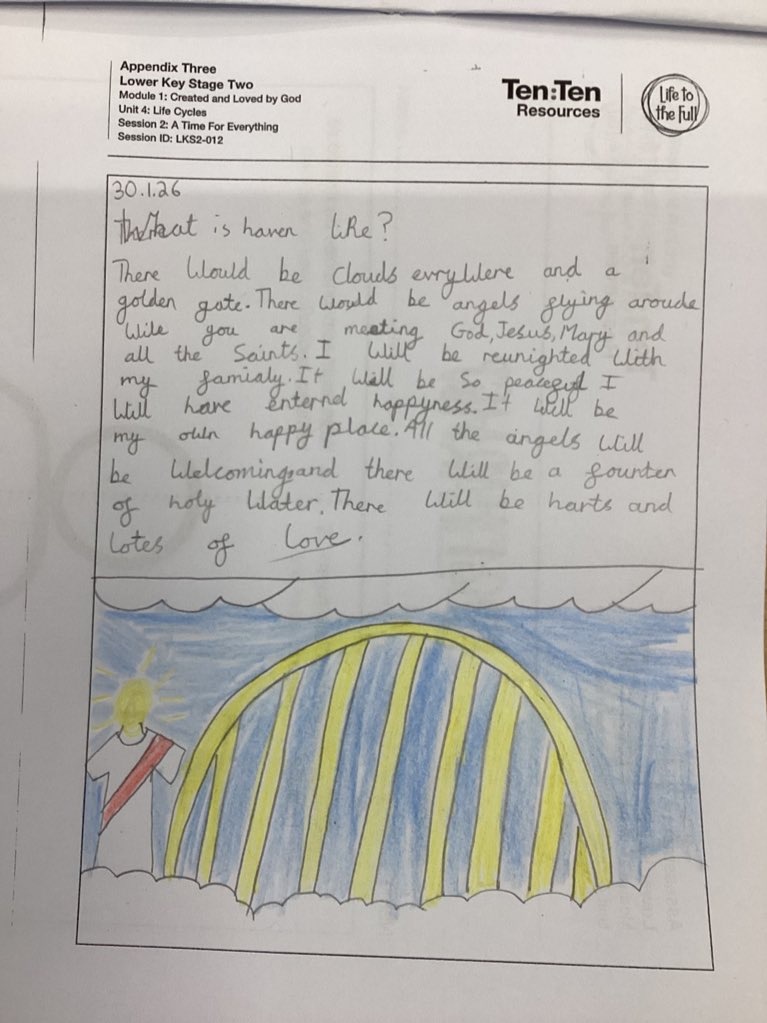 Appendix Three
Lower Key Stage Two
Module 1: Created and Loved by God
Unit 4: Life Cycles
Session 2: A Time For Everything
Session ID: LKS2-012
Ten:Ten
Resources
Life to
the Full
30.1.26
What is haven like?
There Would be Clouds evryWere and a
golden gate. There would be angels flying aroude
Wile you are meeting God, Jesus, Mary and
all the Saints. I Will be reunighted With
my famialy. It Will be So peaceful I
Will have enternd happyness. It Will be
my own happy place. All the angels Will
be Welcoming, and there Will be a founten
of holy Water. There Will be harts and
Lotes of Love.